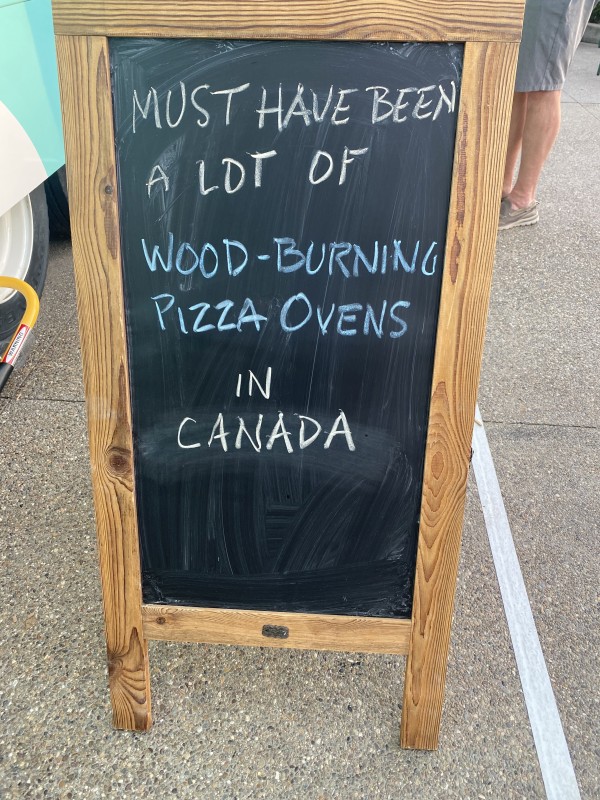 MUST HAVE BEEN
A LOT OF
WOOD-BURNING
PIZZA OVENS
IN
CANADA
WARNING